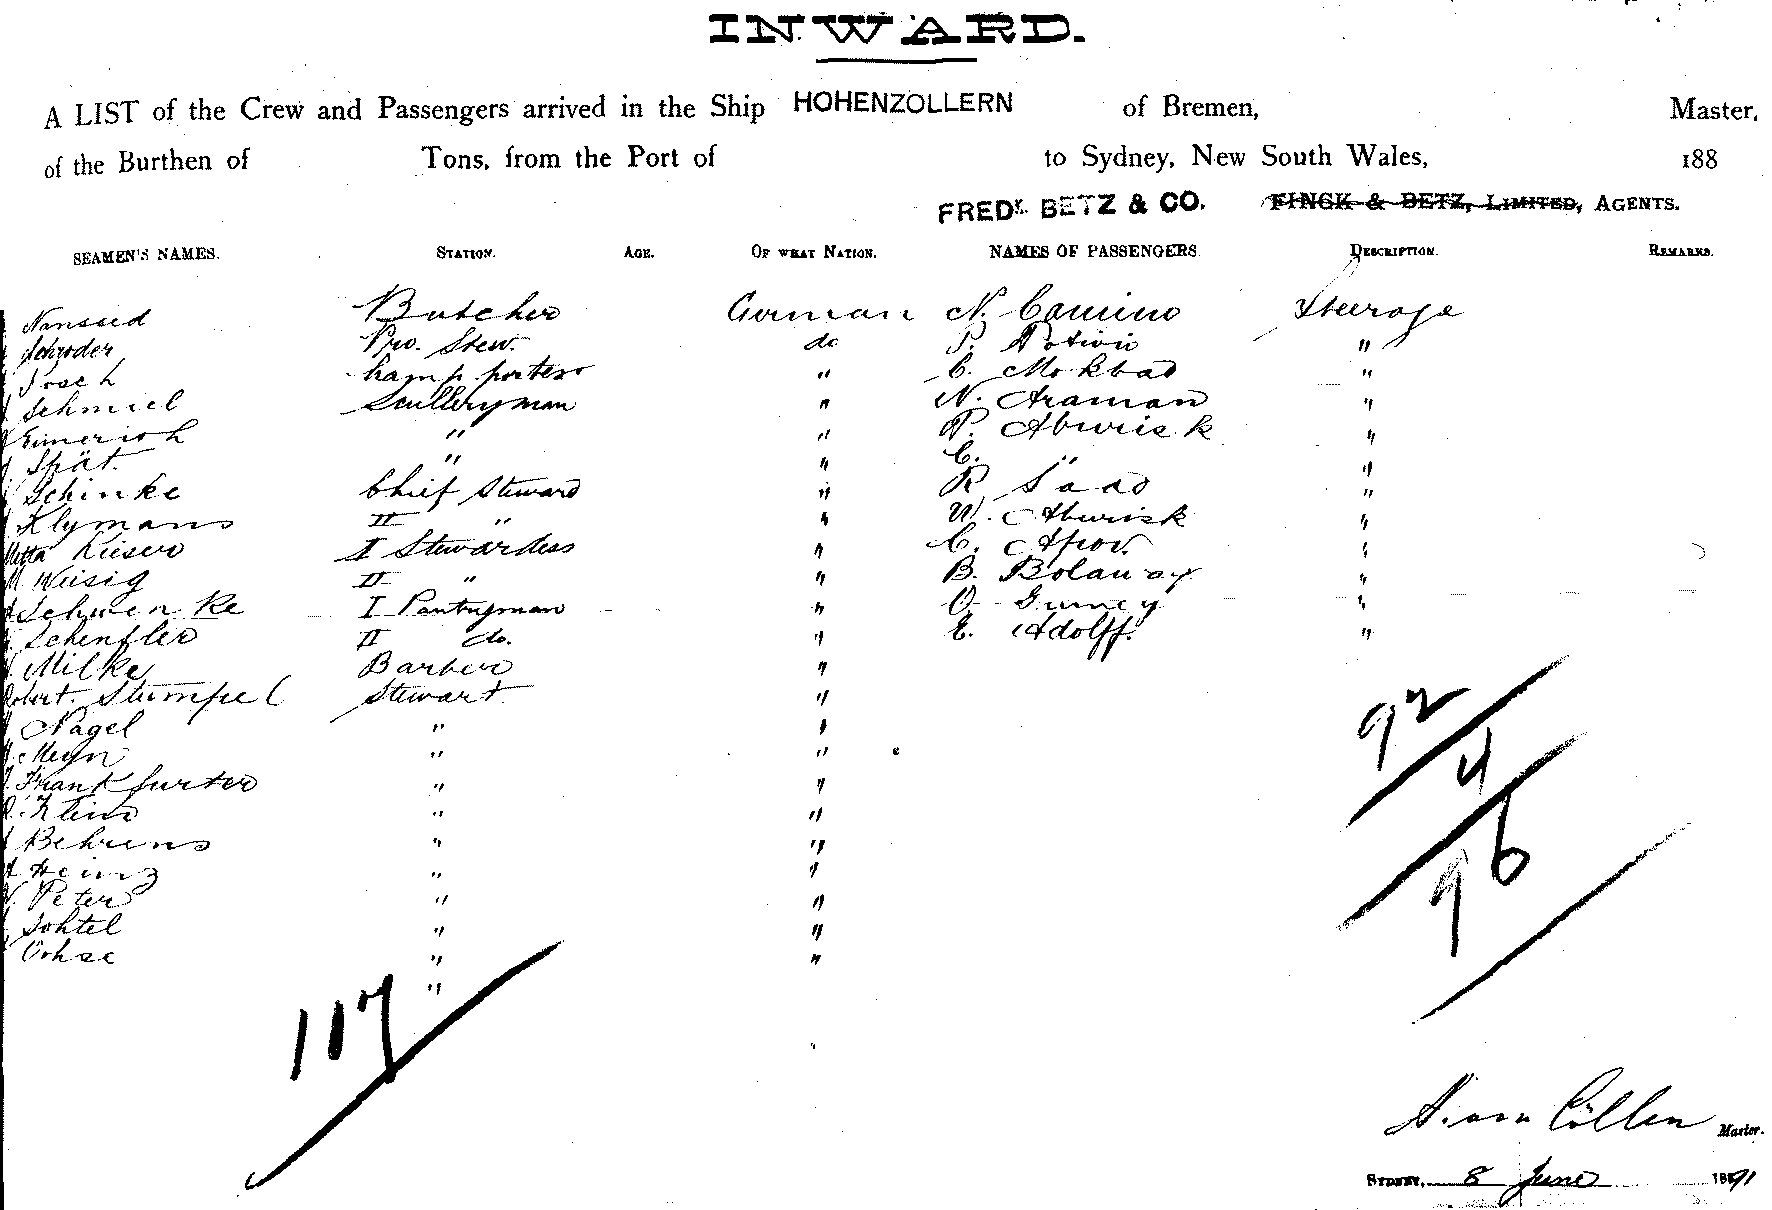 INWARD.
A LIST of the Crew and Passengers arrived in the Ship HOHENZOLLERN of Bremen, Master,
of the Burthen of Tons, from the Port of to Sydney, New South Wales, 188
FREDK. BETZ & CO. FINCK & BETZ, LIMITED, AGENTS.
SEAMEN'S NAMES. STATION. AGE. OF WHAT NATION. NAMES OF PASSENGERS DESCRIPTION. REMARKS.
Butcher German N. Camino Steerage
Schroder Pro. Stew. do P.
Josch Lamp porter " C. Mokbad "
Schmiel Sculleryman " N. Araman "
Eimerich " " P. Abwrisk "
Spät. " " C. " "
Schinke Chief Steward " R Saad "
Klymans II " " W. Abwrisk "
Metta Kieser I Stewardess " C.
M. Weisig II " " B. Bolaway "
Schwenke I Pantryman " O. Gurney "
Schenfler II do. " E. Adolff. "
Milke Barber "
Robert. Stumpel Stewart "
Nagel " "
Meyn " "
Frankfurter " "
Klein " "
Behrens " "
Heinz " "
Peter " "
Johtel " "
Ohse " "
"
92
4
96
117
Cöllen Master.
SYDNEY, 8 June 1891